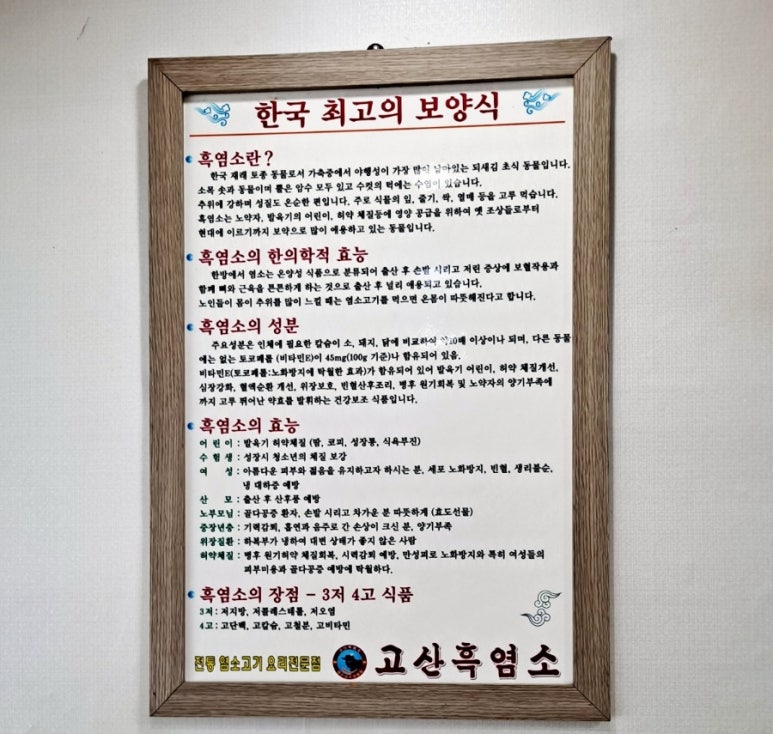 한국 최고의 보양식
흑염소란?
한국 재래 토종 동물로서 가축중에서 야행성이 가장 많이 남아있는 되새김 초식 동물입니다.
소목 솟과 동물이며 뿔은 암수 모두 있고 수컷의 턱에는 수염이 있습니다.
추위에 강하며 성질도 온순한 편입니다. 주로 식물의 잎, 줄기, 싹, 열매 등을 고루 먹습니다.
흑염소는 노약자, 발육기의 어린이, 허약 체질등에 영양 공급을 위하여 옛 조상들로부터
현대에 이르기까지 보약으로 많이 애용하고 있는 동물입니다.
흑염소의 한의학적 효능
한방에서 염소는 온양성 식품으로 분류되어 출산 후 손발 시리고 저린 증상에 보혈작용과
함께 뼈와 근육을 튼튼하게 하는 것으로 출산 후 널리 애용되고 있습니다.
노인들이 몸이 추위를 많이 느낄 때는 염소고기를 먹으면 온몸이 따뜻해진다고 합니다.
흑염소의 성분
주요성분은 인체에 필요한 칼슘이 소, 돼지, 닭에 비교하여 약10배 이상이나 되며, 다른 동물
에는 없는 토코페롤 (비타민E)이 45mg(100g 기준)나 함유되어 있음.
비타민E(토코페롤:노화방지에 탁월한 효과)가 함유되어 있어 발육기 어린이, 허약 체질개선,
심장강화, 혈액순환 개선, 위장보호, 빈혈산후조리, 병후 원기회복 및 노약자의 양기부족에
까지 고루 뛰어난 약효를 발휘하는 건강보조 식품입니다.
흑염소의 효능
어 린 이 : 발육기 허약체질 (땀, 코피, 성장통, 식욕부진)
수 험 생 : 성장시 청소년의 체질 보강
여 성 : 아름다운 피부와 젊음을 유지하고자 하시는 분, 세포 노화방지, 빈혈, 생리불순,
냉 대하증 예방
산 모 : 출산 후 산후풍 예방
노부모님 : 골다공증 환자, 손발 시리고 차가운 분 따뜻하게 (효도선물)
중장년층 : 기력감퇴, 흡연과 음주로 간 손상이 크신 분, 양기부족
위장질환 : 하복부가 냉하여 대변 상태가 좋지 않은 사람
허약체질 : 병후 원기허약 체질회복, 시력감퇴 예방, 만성피로 노화방지와 특히 여성들의
피부미용과 골다공증 예방에 탁월하다.
흑염소의 장점 - 3저 4고 식품
3저 : 저지방, 저콜레스테롤, 저오염
4고 : 고단백, 고칼슘, 고철분, 고비타민
전통 염소고기 요리전문점 고산흑염소